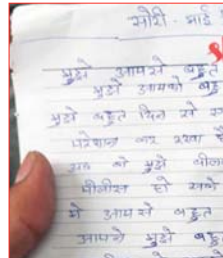 सोरी - भाई
मुझे आपसे बहुत
मुझे आपको बहु
मुझे बहुत दिन से
परेशान कर रखा है
सब को मुझे
पोलीस हो सके
मे आपसे बहुत
आपने मुझे बहु